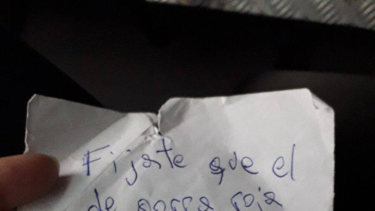 Fijate que el
de gorra roja